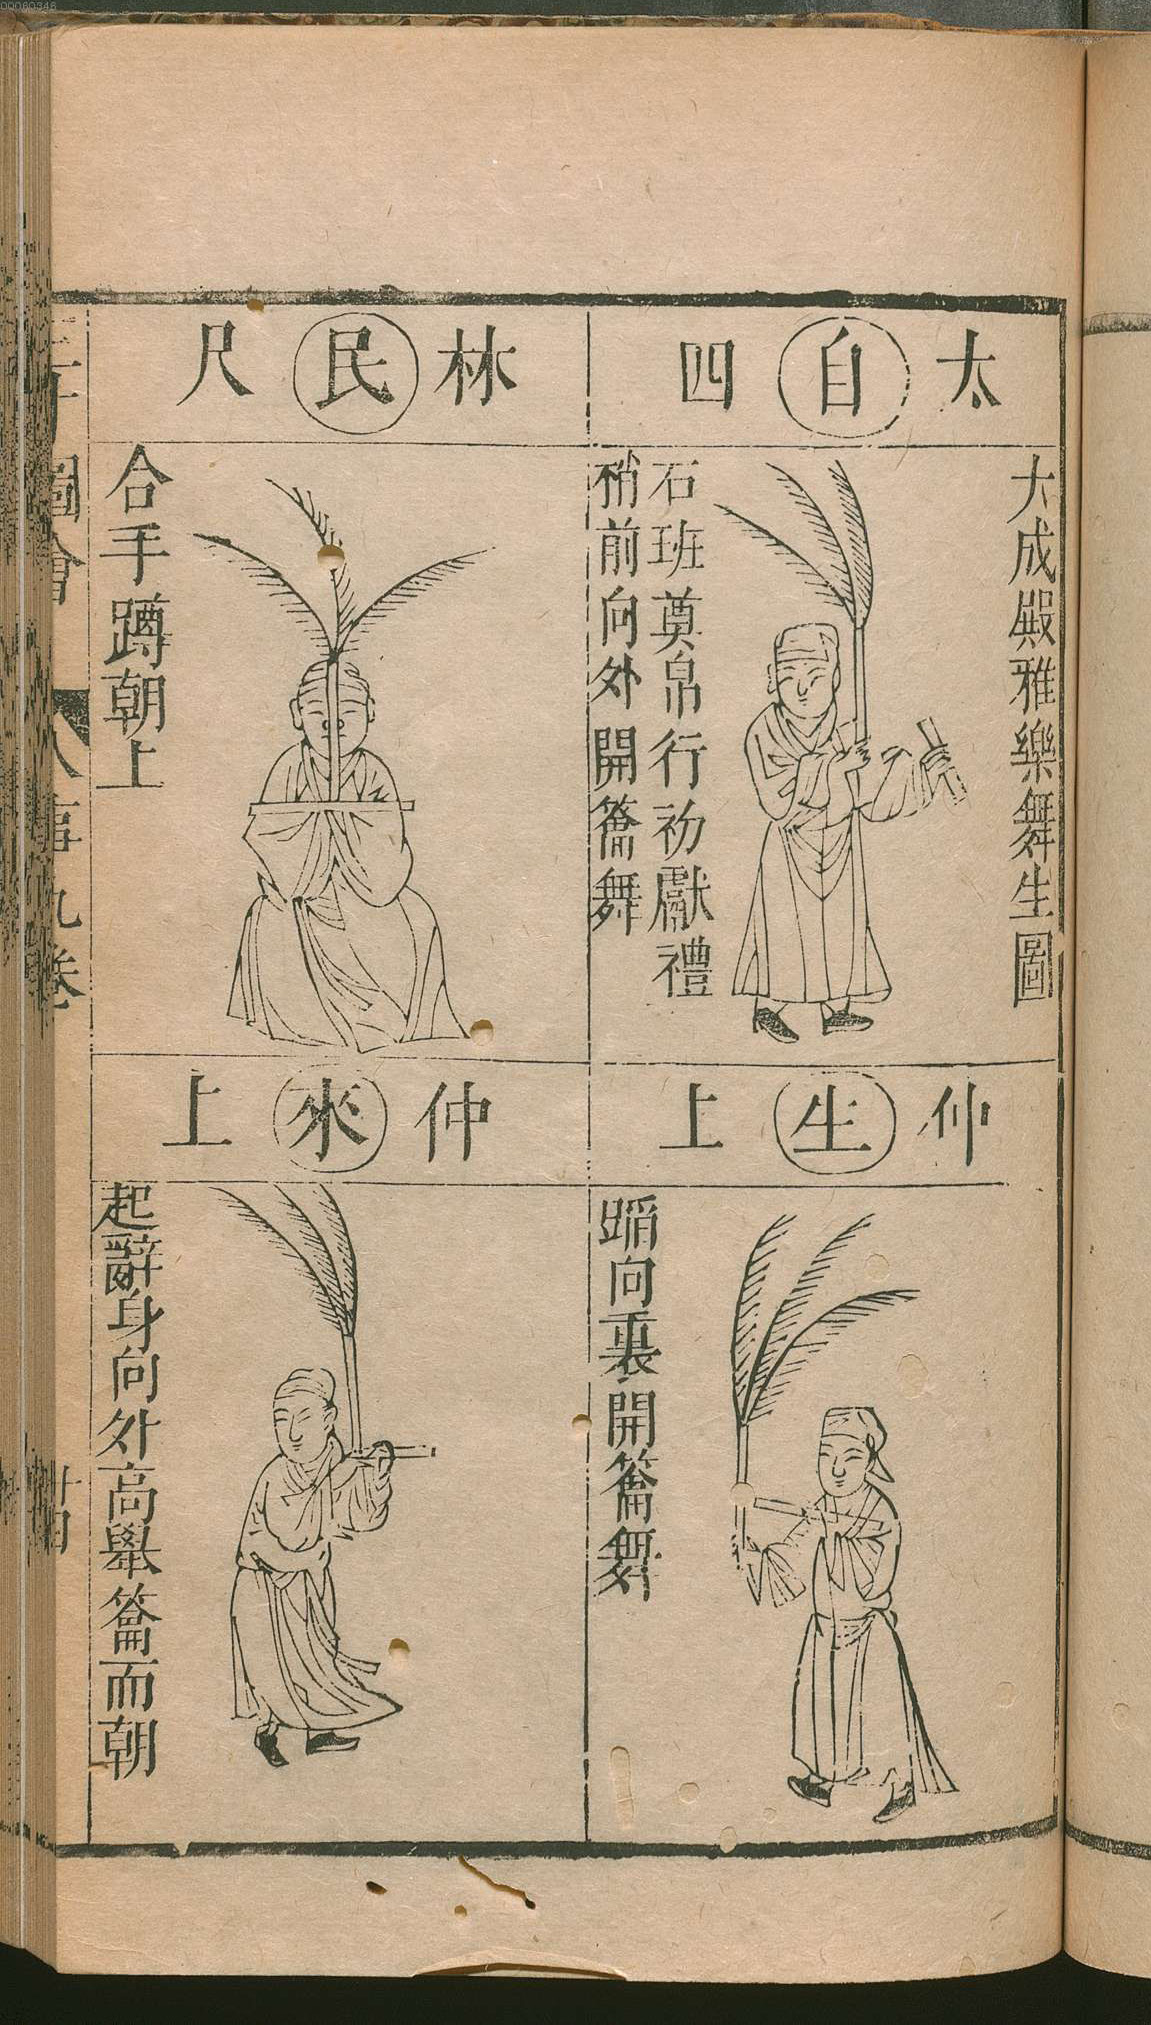 大成殿雅樂舞生圖
太自四
石班奠帛行初獻禮
稍前向外開籥舞
仲生上
蹈向裏開籥舞
林民尺
合手蹲朝上
仲來上
起辭身向外高舉籥而朝
圖會
人事九卷
00080346